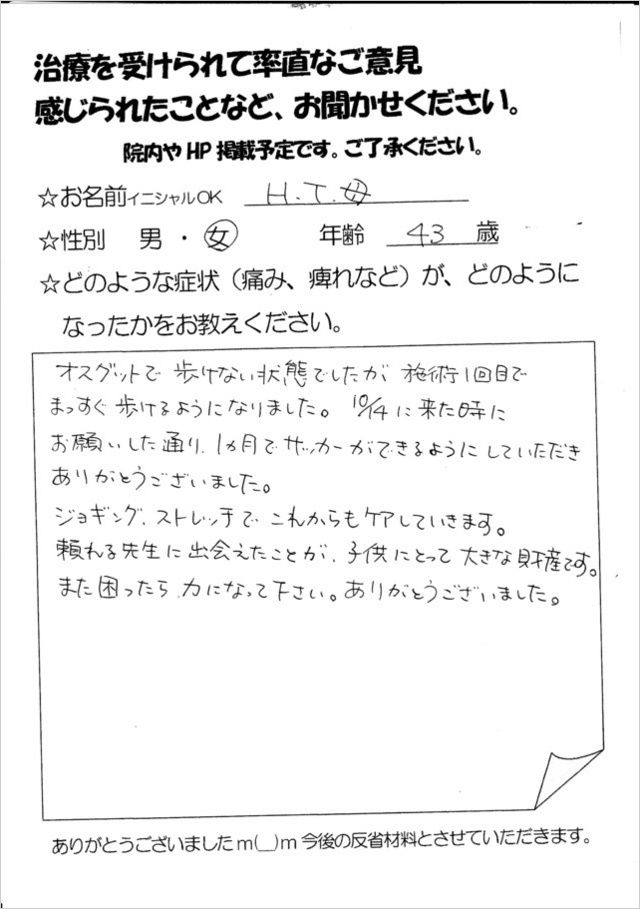 治療を受けられて率直なご意見
感じられたことなど、お聞かせください。
院内やHP掲載予定です。ご了承ください。
☆お名前イニシャルOK H.T.母
☆性別 男・女 年齢 43 歳
☆どのような症状（痛み、痺れなど）が、どのように
なったかをお教えください。
オスグットで歩けない状態でしたが施術1回目で
まっすぐ歩けるようになりました。10/14に来た時に
お願いした通り、1ヵ月でサッカーができるようにしていただき
ありがとうございました。
ジョギング、ストレッチでこれからもケアしていきます。
頼れる先生に出会えたことが、子供にとって大きな財産です。
また困ったら力になって下さい。ありがとうございました。
ありがとうございましたm(__)m今後の反省材料とさせていただきます。